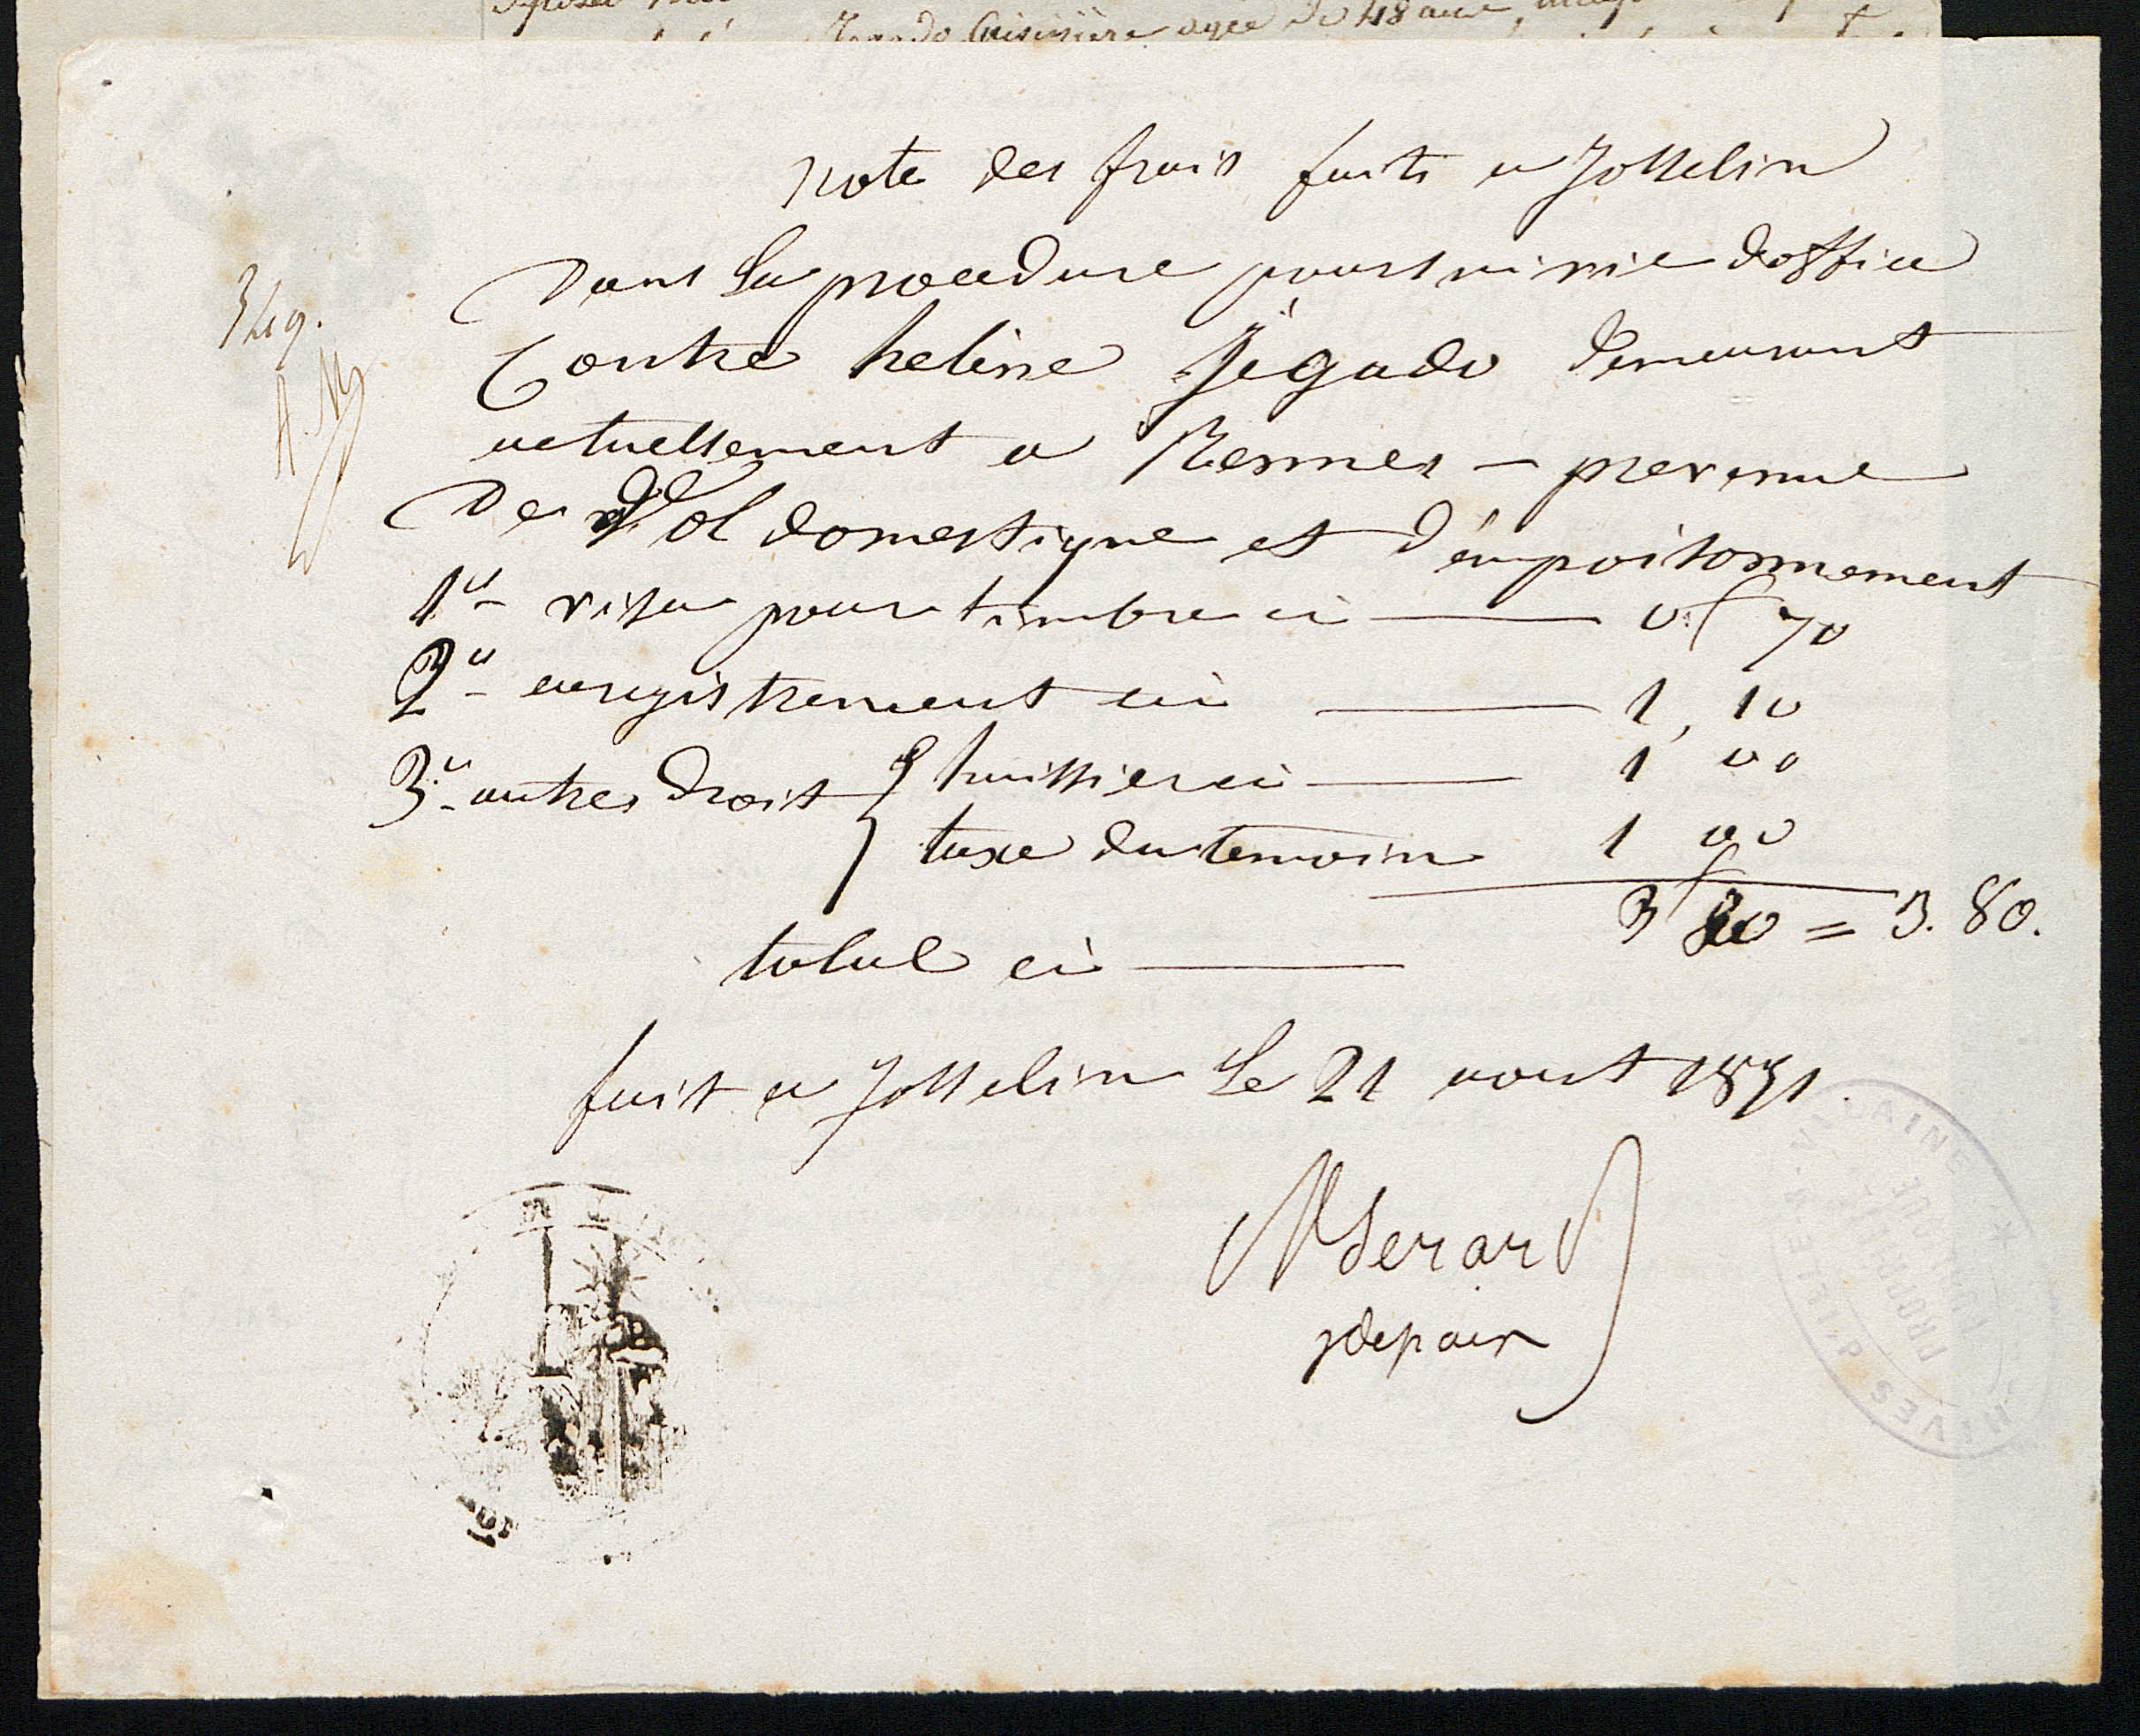 Jegado Cuisinière agée de 48 ans,
note des frais faits a Josselin
Dans La procedure poursuivie d'office
Contre helène Jégado demeurant
actuellement a Rennes — prevenue
De Vol domestique et d'émpoisonnement
1º - visa pour timbre ci — 0f 70
2º - enregistrement ci — 1, 10
3º - autres Droit { huissier ci — 1 00
taxe du temoin 1 00
total ci — 3f 80 = 3. 80.
fait a Josselin Le 21 aout 1851.
jdepaix
VILAINE *